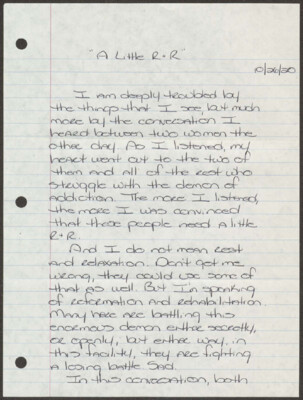 "A Little R+R"
10/26/20
I am deeply troubled by
the things that I see, but much
more by the conversation I
heard between two women the
other day. As I listened, my
heart went out to the two of
them and all of the rest who
struggle with the demon of
addiction. The more I listened,
the more I was convinced
that these people need a little
R+R.
And I do not mean rest
and relaxation. Don't get me
wrong, they could use some of
that as well. But I'm speaking
of reformation and rehabilitation.
Many here are battling this
enormous demon either secretly,
or openly, but either way, in
this facility, they are fighting
a losing battle. Sad.
In this conversation, both